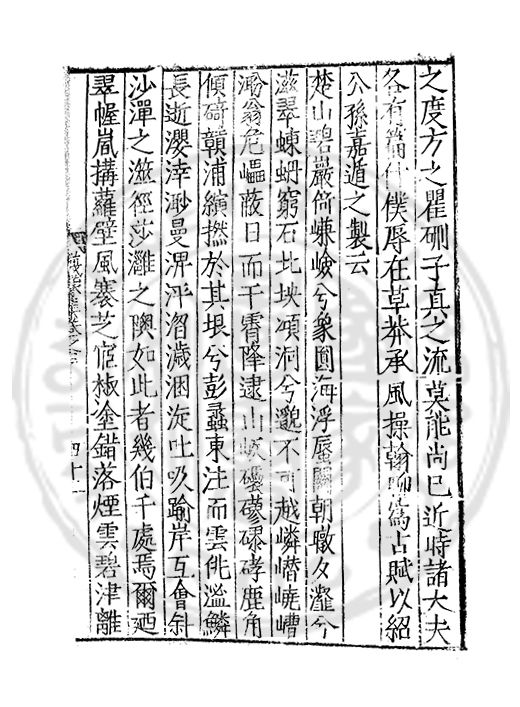 之度方之瞿硎子真之流莫能尚已近時諸大夫
各有篇什僕辱在草莽承風操翰聊爲占賦以紹
公孫嘉遁之製云
楚山碧巖尙嵰嶮兮象圓海浮蜃闕朝暾夕灩兮
滋翠蝀蛧窮石比坱澒洞兮邈不可越嶙嶜嶢嶆
渤滃危嶇蔽日而干霄降逮山岐礧磟磟硣鹿角
傾碕贑浦繽撚於其垠兮彭蠡東注而雲佻濫鱗
長逝瀴涬渺曼淠泙淈濊涃淀吐吸踰岸互會斜
沙潬之滋徑莎灘之隩如此者幾伯千處焉爾廼
翠幄嵐搆蘿壁風褰芝宧椒塗錯落煙雲碧津離
卷之三 四十一